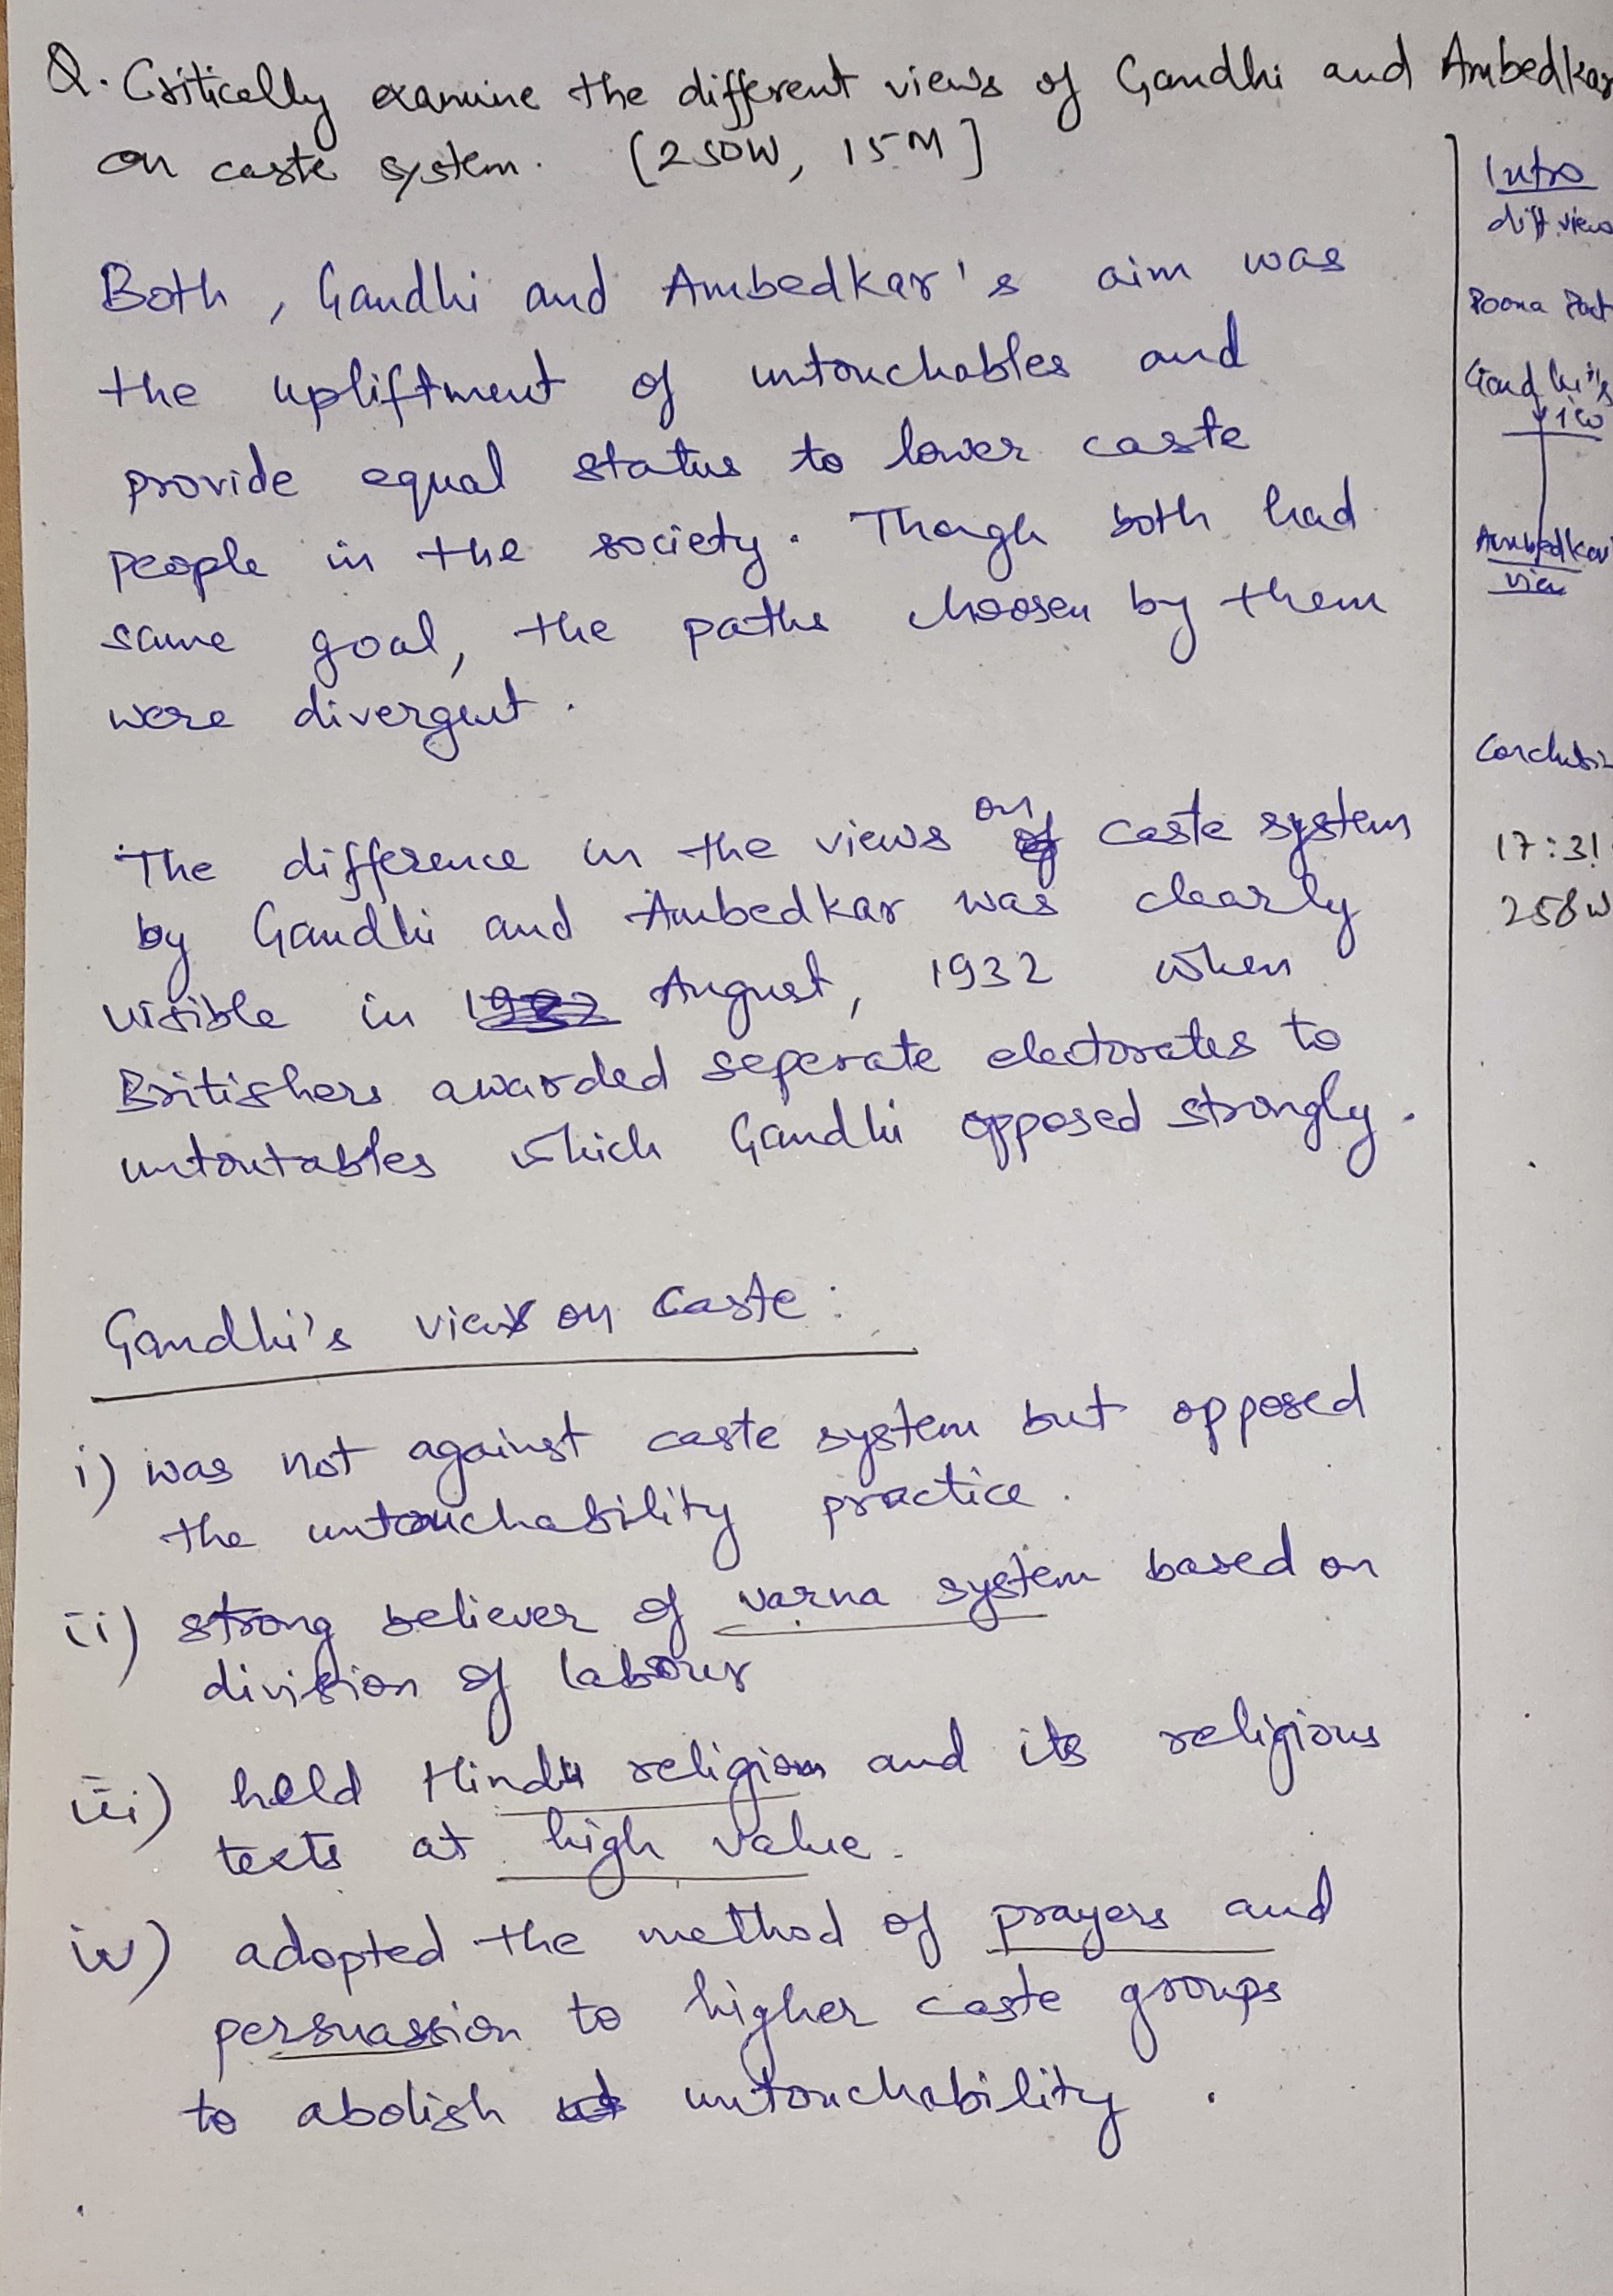 Q. Critically examine the different views of Gandhi and Ambedkar
on caste system. [250W, 15M]
Both, Gandhi and Ambedkar's aim was
the upliftment of untouchables and
provide equal status to lower caste
people in the society. Though both had
same goal, the paths choosen by them
were divergent.
The difference in the views on caste system
by Gandhi and Ambedkar was clearly
visible in August, 1932 when
Britishers awarded seperate electorates to
untoutables which Gandhi opposed strongly.
Gandhi's view on Caste:
i) was not against caste system but opposed
the untouchability practice.
ii) strong believer of varna system based on
division of labour
iii) held Hindu religion and its religious
texts at high value.
iv) adopted the method of prayers and
persuassion to higher caste groups
to abolish untouchability.
Intro
diff. view
Poona Pact
Gandhi's
view
Ambedkar
view
Conclusi
17:31
258W